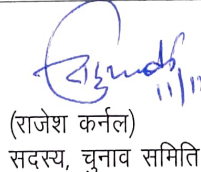 11/1
(राजेश कर्नल)
सदस्य, चुनाव समिति